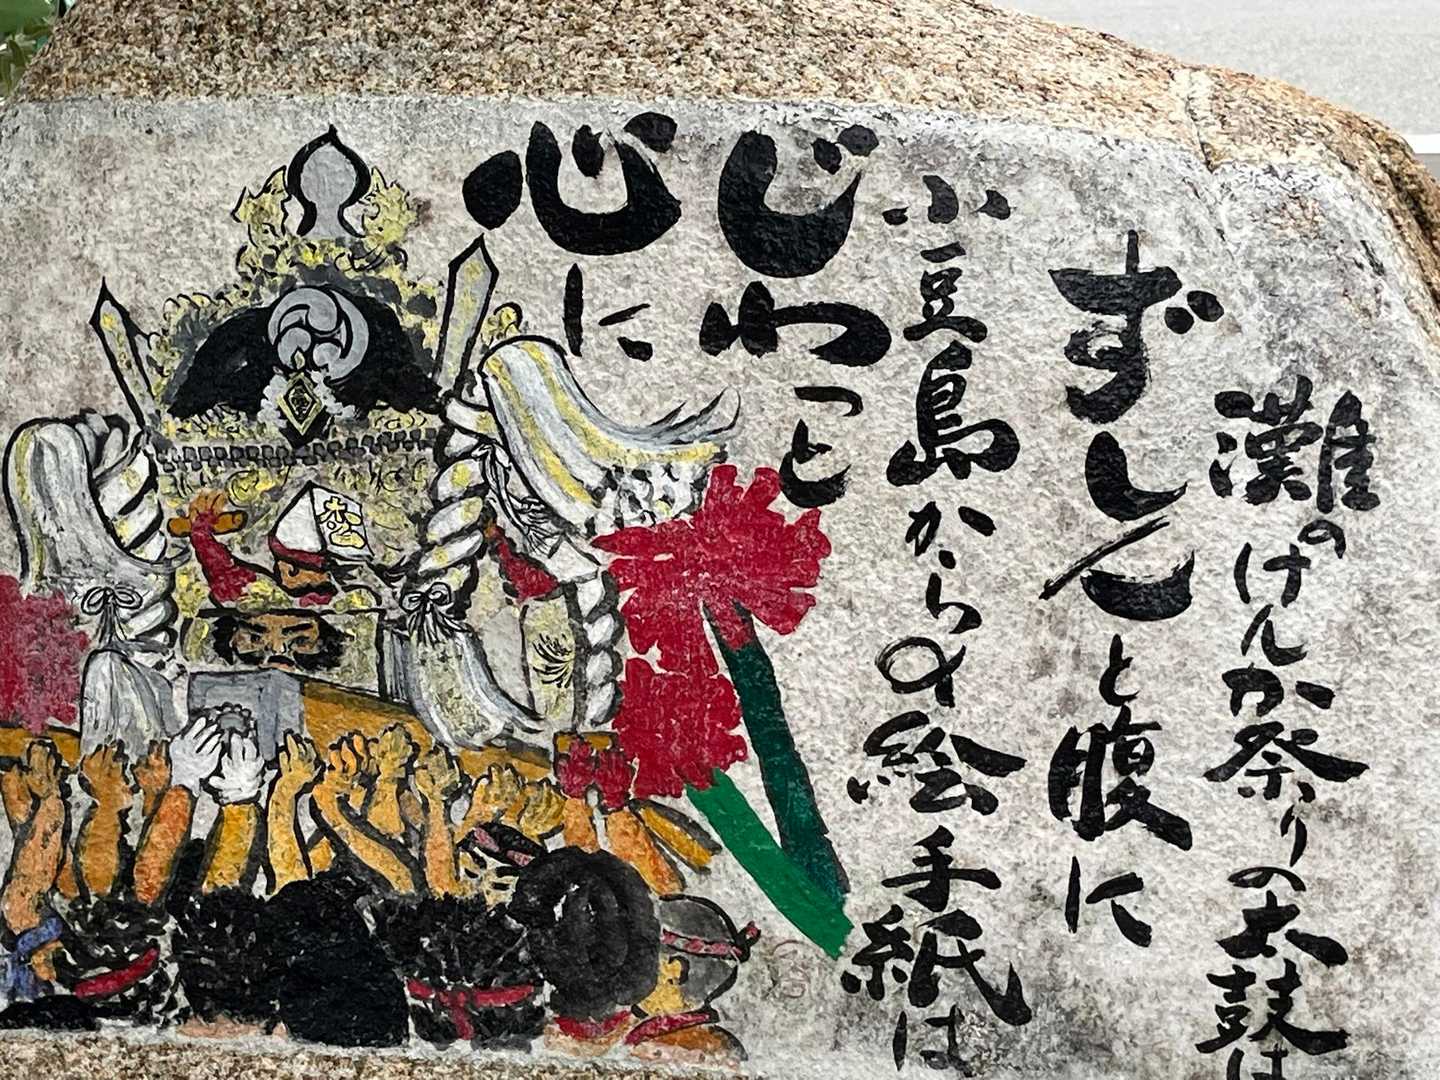 灘のけんか祭りの太鼓は
ずしんと腹に
小豆島からの絵手紙は
じわっと
心に